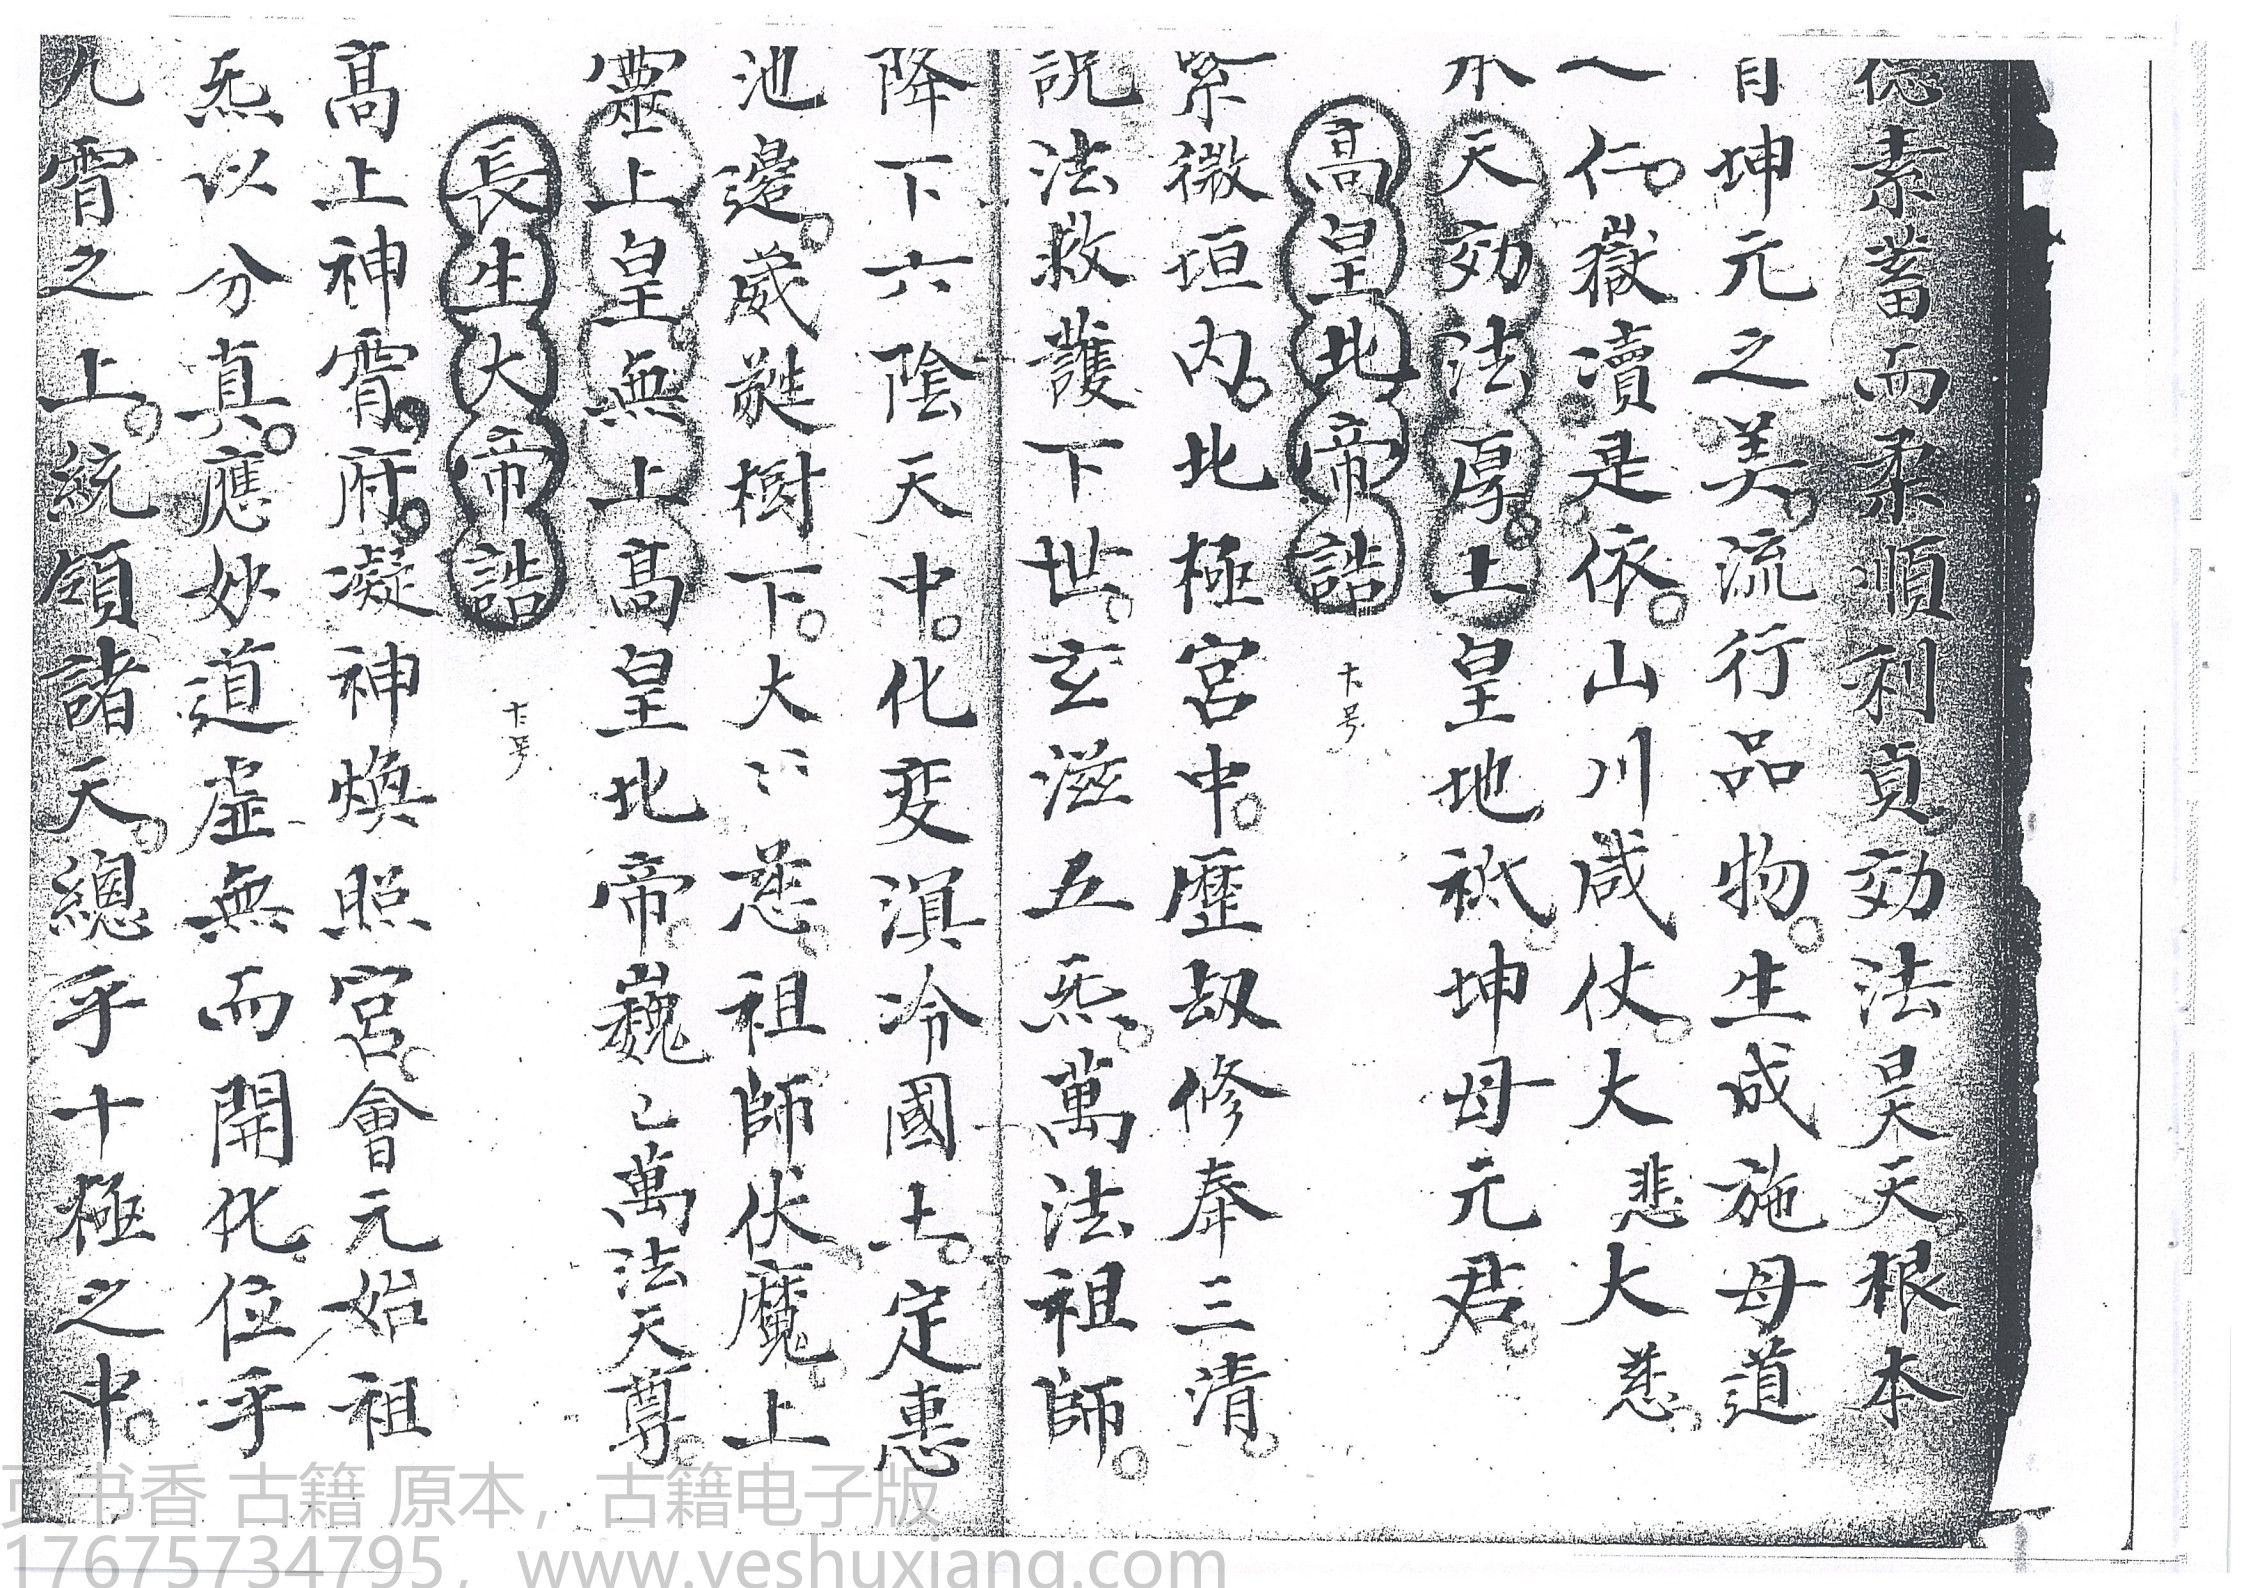 德素蓄而柔順利貞効法昊天根本
育坤元之美流行品物生成施母道
一仁嶽瀆是依山川咸仗大悲大慈
承天効法厚土皇地祇坤母元君
高皇北帝誥 十号
紫微垣内北極宮中歷劫修奉三清
説法救護下世玄滋五炁萬法祖師
降下六陰天中化变溟泠國土定惠
池邊葳蕤樹下大〻慈祖師伏魔上
靈上皇無上高皇北帝巍〻萬法天尊
長生大帝誥 十号
高上神霄府凝神煥照宮會元始祖
炁以分真應妙道虛無而開化位乎
九霄之上統領諸天總乎十極之中
页书香 古籍 原本，古籍电子版
17675734795，www.yeshuxiang.com